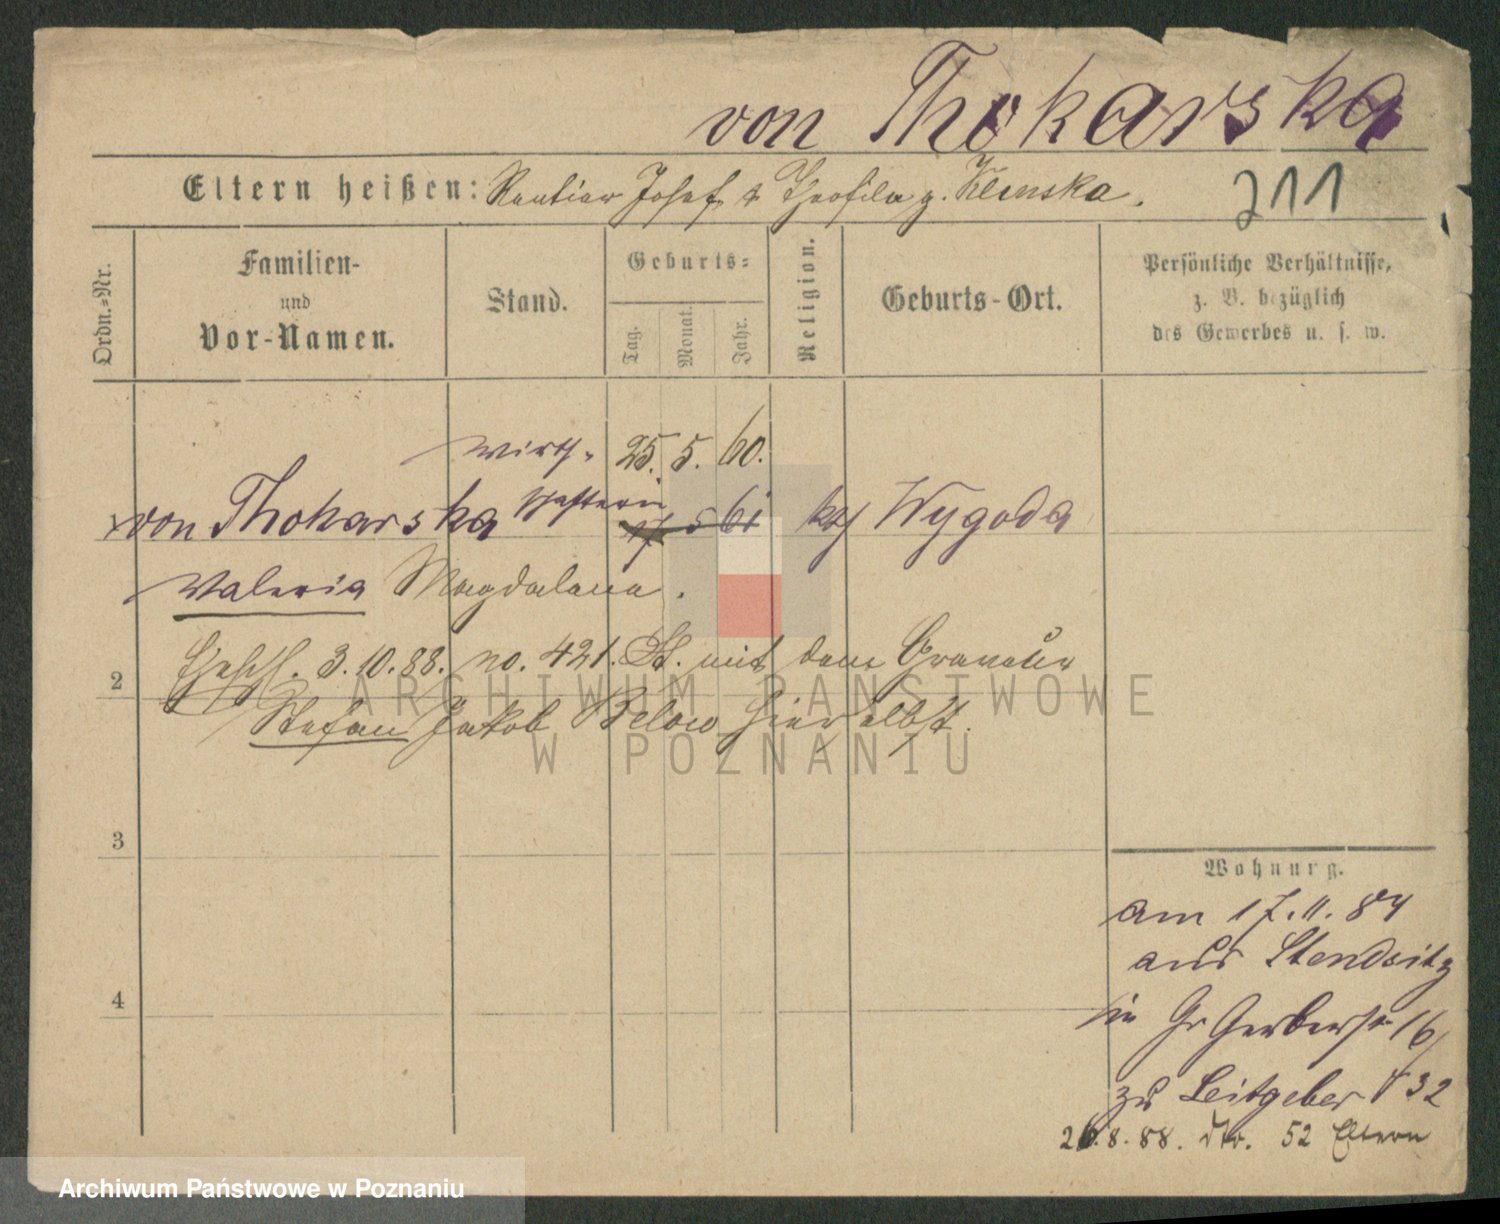 von Thokarska
Eltern heißen: Rentier Josef & Theofila g. Klinska.
211
Ordn.-Nr.
Familien-
und
Vor-Namen.
Stand.
Geburts-
Tag.
Monat.
Jahr.
Religion.
Geburts-Ort.
Persönliche Verhältnisse,
z. B. bezüglich
des Gewerbes u. s. w.
wirth-
25. 5. 60.
von Thokarska schafterin 17 5 61 kth Wygoda
Valeria Magdalena.
Ehesch. 3.10.88. no. 421. St. mit dem
2
Stefan Jakob Below hierselbst.
3
4
Wohnung.
am 17.11.84
aus Stendsitz
in Gr Gerberstr 16/
zu Leitgeber 132
26.8.88. No. 52 Eltern
ARCHIWUM PAŃSTWOWE
W POZNANIU
Archiwum Państwowe w Poznaniu